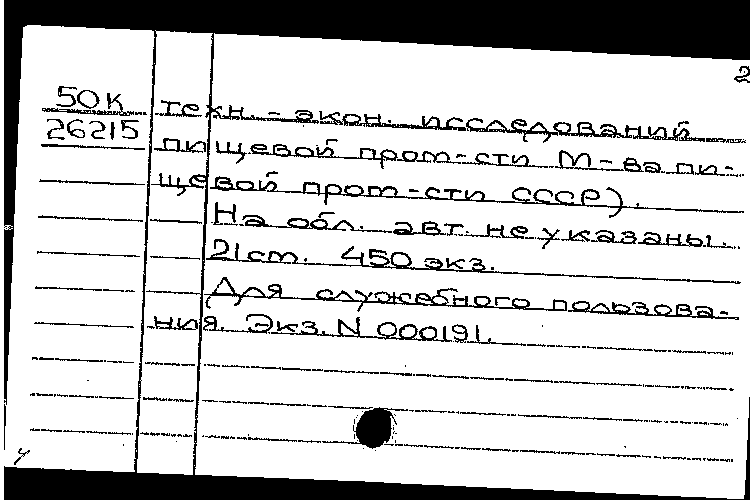 2
50К техн.-экон. исследований
26215 пищевой пром-сти М-ва пи-
щевой пром-сти СССР).
На обл. авт. не указаны.
21 ст. 450 экз.
Для служебного пользова-
ния. Экз. N 000191.